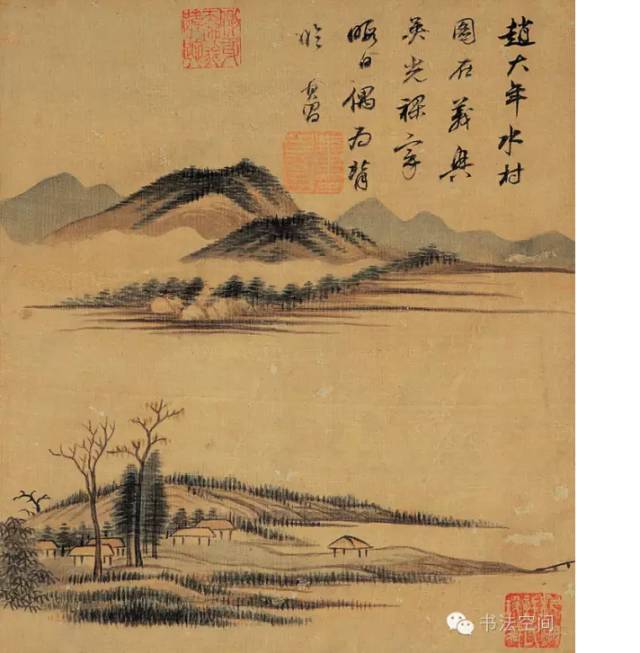 趙大年水村
圖在義興
吳光祿家
暇日偶為背
臨 其昌
书法空间